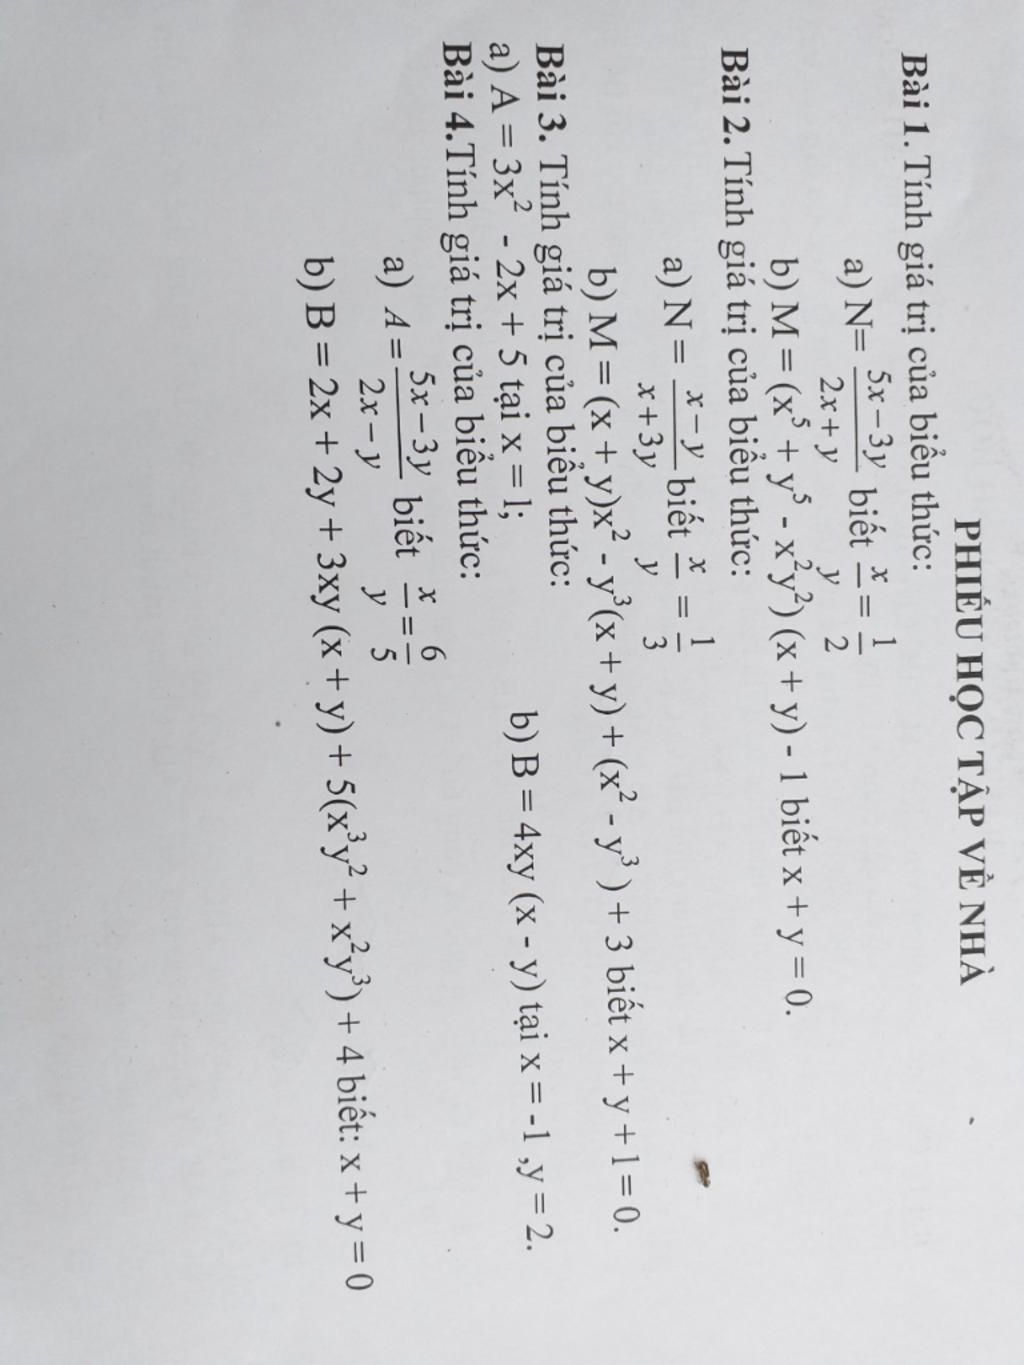 PHIẾU HỌC TẬP VỀ NHÀ
Bài 1. Tính giá trị của biểu thức:
a) N= \frac{5x-3y}{2x+y} biết \frac{x}{y} = \frac{1}{2}
b) M = (x⁵ + y⁵ - x²y²) (x + y) - 1 biết x + y = 0.
Bài 2. Tính giá trị của biểu thức:
a) N = \frac{x-y}{x+3y} biết \frac{x}{y} = \frac{1}{3}
b) M = (x + y)x² - y³(x + y) + (x² - y³ ) + 3 biết x + y + 1 = 0.
Bài 3. Tính giá trị của biểu thức:
a) A = 3x² - 2x + 5 tại x = 1; b) B = 4xy (x - y) tại x = -1 ,y = 2.
Bài 4.Tính giá trị của biểu thức:
a) A = \frac{5x-3y}{2x-y} biết \frac{x}{y} = \frac{6}{5}
b) B = 2x + 2y + 3xy (x + y) + 5(x³y² + x²y³) + 4 biết: x + y = 0